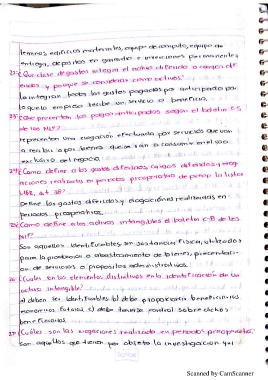 terrenos, edificios materiales, equipo de computo, equipo de
entrega, depositos en garantia e inversiones permanentes
22 ¿Que clase de gastos integra el activo diferido o cargos dife-
ridos y porque se consideran como activos?
lo integran todos los gastos pagados por anticipado por
lo que la empresa recibe un servicio o beneficio.
23 ¿Que presentan los pagos anticipados según el boletin C-5
de las NIF?
representan una erogación efectuada por servicios que van
a recibir o por bienes que se van a consumir en el uso
exclusivo del negocio.
24 ¿Como define a los gastos diferidos, cargos diferidos y erog-
aciones realizadas en periodos preoperativos de
Define los gastos diferidos y erogaciones realizadas en
periodos preoperativos.
25 ¿Como define a los activos intangibles el boletin C-8 de las
NIF?
Son aquellos identificables sin sustancia fisica, utilizados
para la producción o abastecimiento de bienes, presentaci-
on de servicios o propositos administrativos.
26 ¿Cuales son los elementos distintivos en la identificación de un
activo intangible?
a) deben ser identificables b) debe proporcionar beneficios
economicos futuros c) debe tenerse control sobre dichos
beneficios.
27 ¿Cuáles son las erogaciones realizadas en periodos preoperativos?
Son aquellos que tienen por objeto la investigación y el
Scribe
Scanned by CamScanner